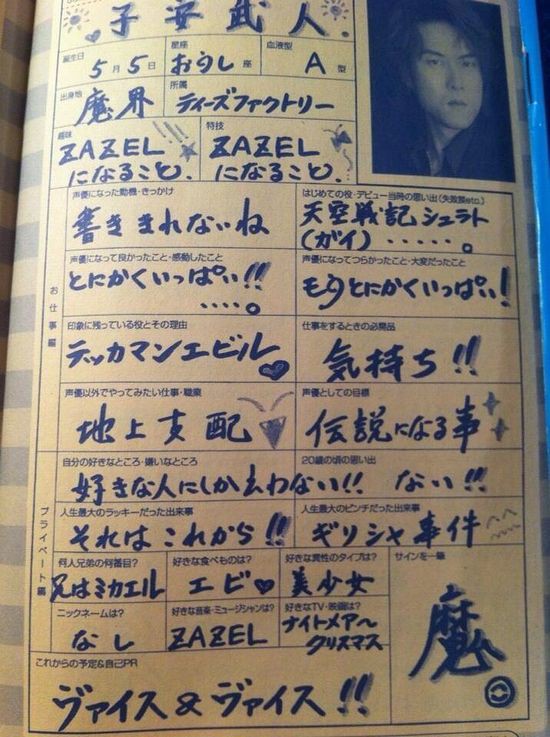 子安武人
誕生日 5月5日
星座 おうし座
血液型 A型
出身地 魔界
所属 ティーズファクトリー
趣味 ZAZEL
になること.
特技 ZAZEL
になること.
声優になった動機・きっかけ
書ききれないね
はじめての役・デビュー当時の思い出(失敗談etc.)
天空戦記シュラト
(ガイ)・・・・・。
声優になって良かったこと・感動したこと
とにかくいっぱい!!
・・・・。
声優になってつらかったこと・大変だったこと
もうとにかくいっぱい!
お仕事編
印象に残っている役とその理由
テッカマンエビル♥
仕事をするときの必需品
気持ち!!
声優以外でやってみたい仕事・職業
地上支配
声優としての目標
伝説になる事
自分の好きなところ・嫌いなところ
好きな人にしか言わない!!
20歳の頃の思い出
ない!!
プライベート編
人生最大のラッキーだった出来事
それはこれから!!
人生最大のピンチだった出来事
ギリシャ事件
何人兄弟の何番目?
兄はミカエル
好きな食べものは?
エビ♥
好きな異性のタイプは?
美少女
サインを一筆
魔
ニックネームは?
なし
好きな音楽・ミュージシャンは?
ZAZEL
好きなTV・映画は?
ナイトメアー
クリスマス
これからの予定&自己PR
ヴァイス&ヴァイス!!